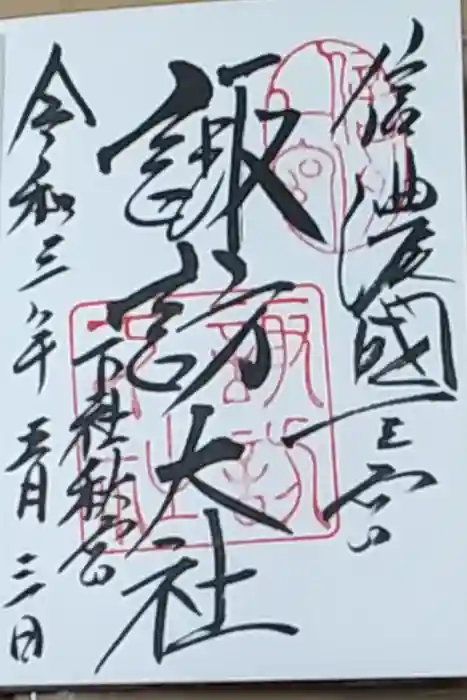 信濃國一之宮
諏訪大社
下社秋宮
令和三年五月三日